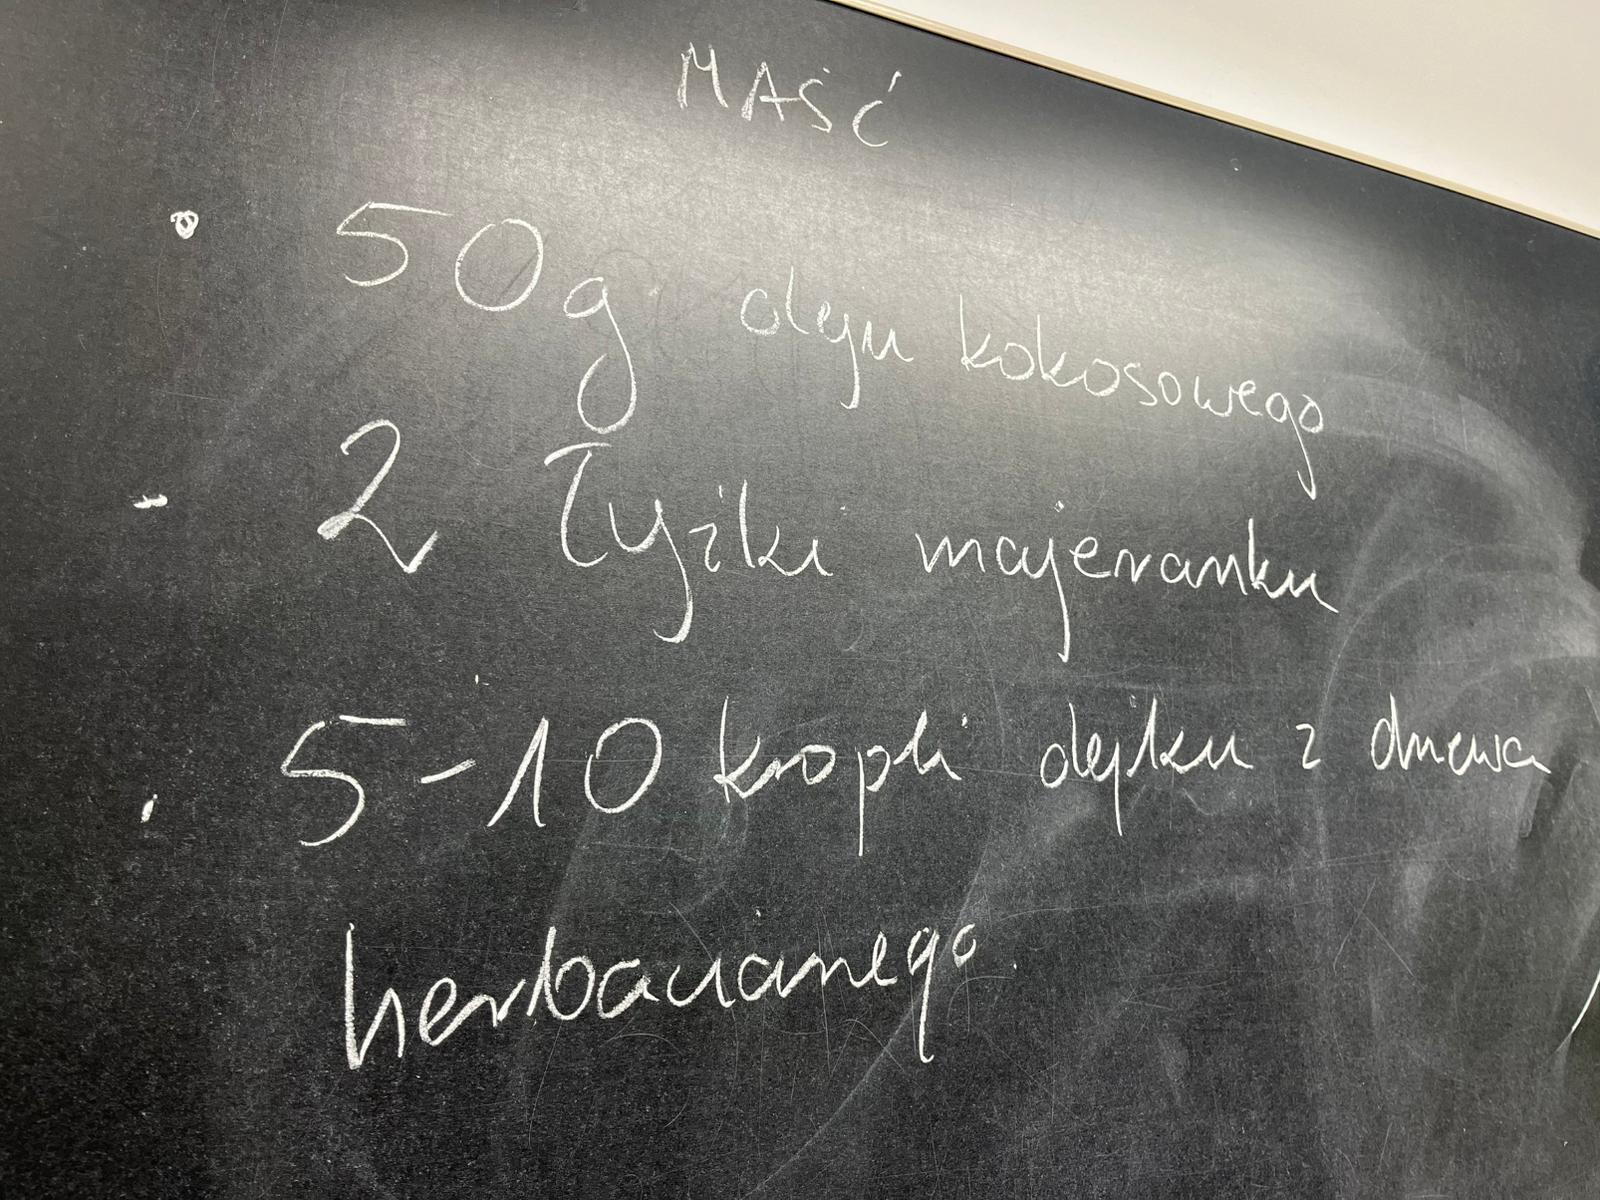 MAŚĆ
• 50g oleju kokosowego
- 2 łyżki majeranku
• 5-10 kropli olejku z drzewa
herbacianego.